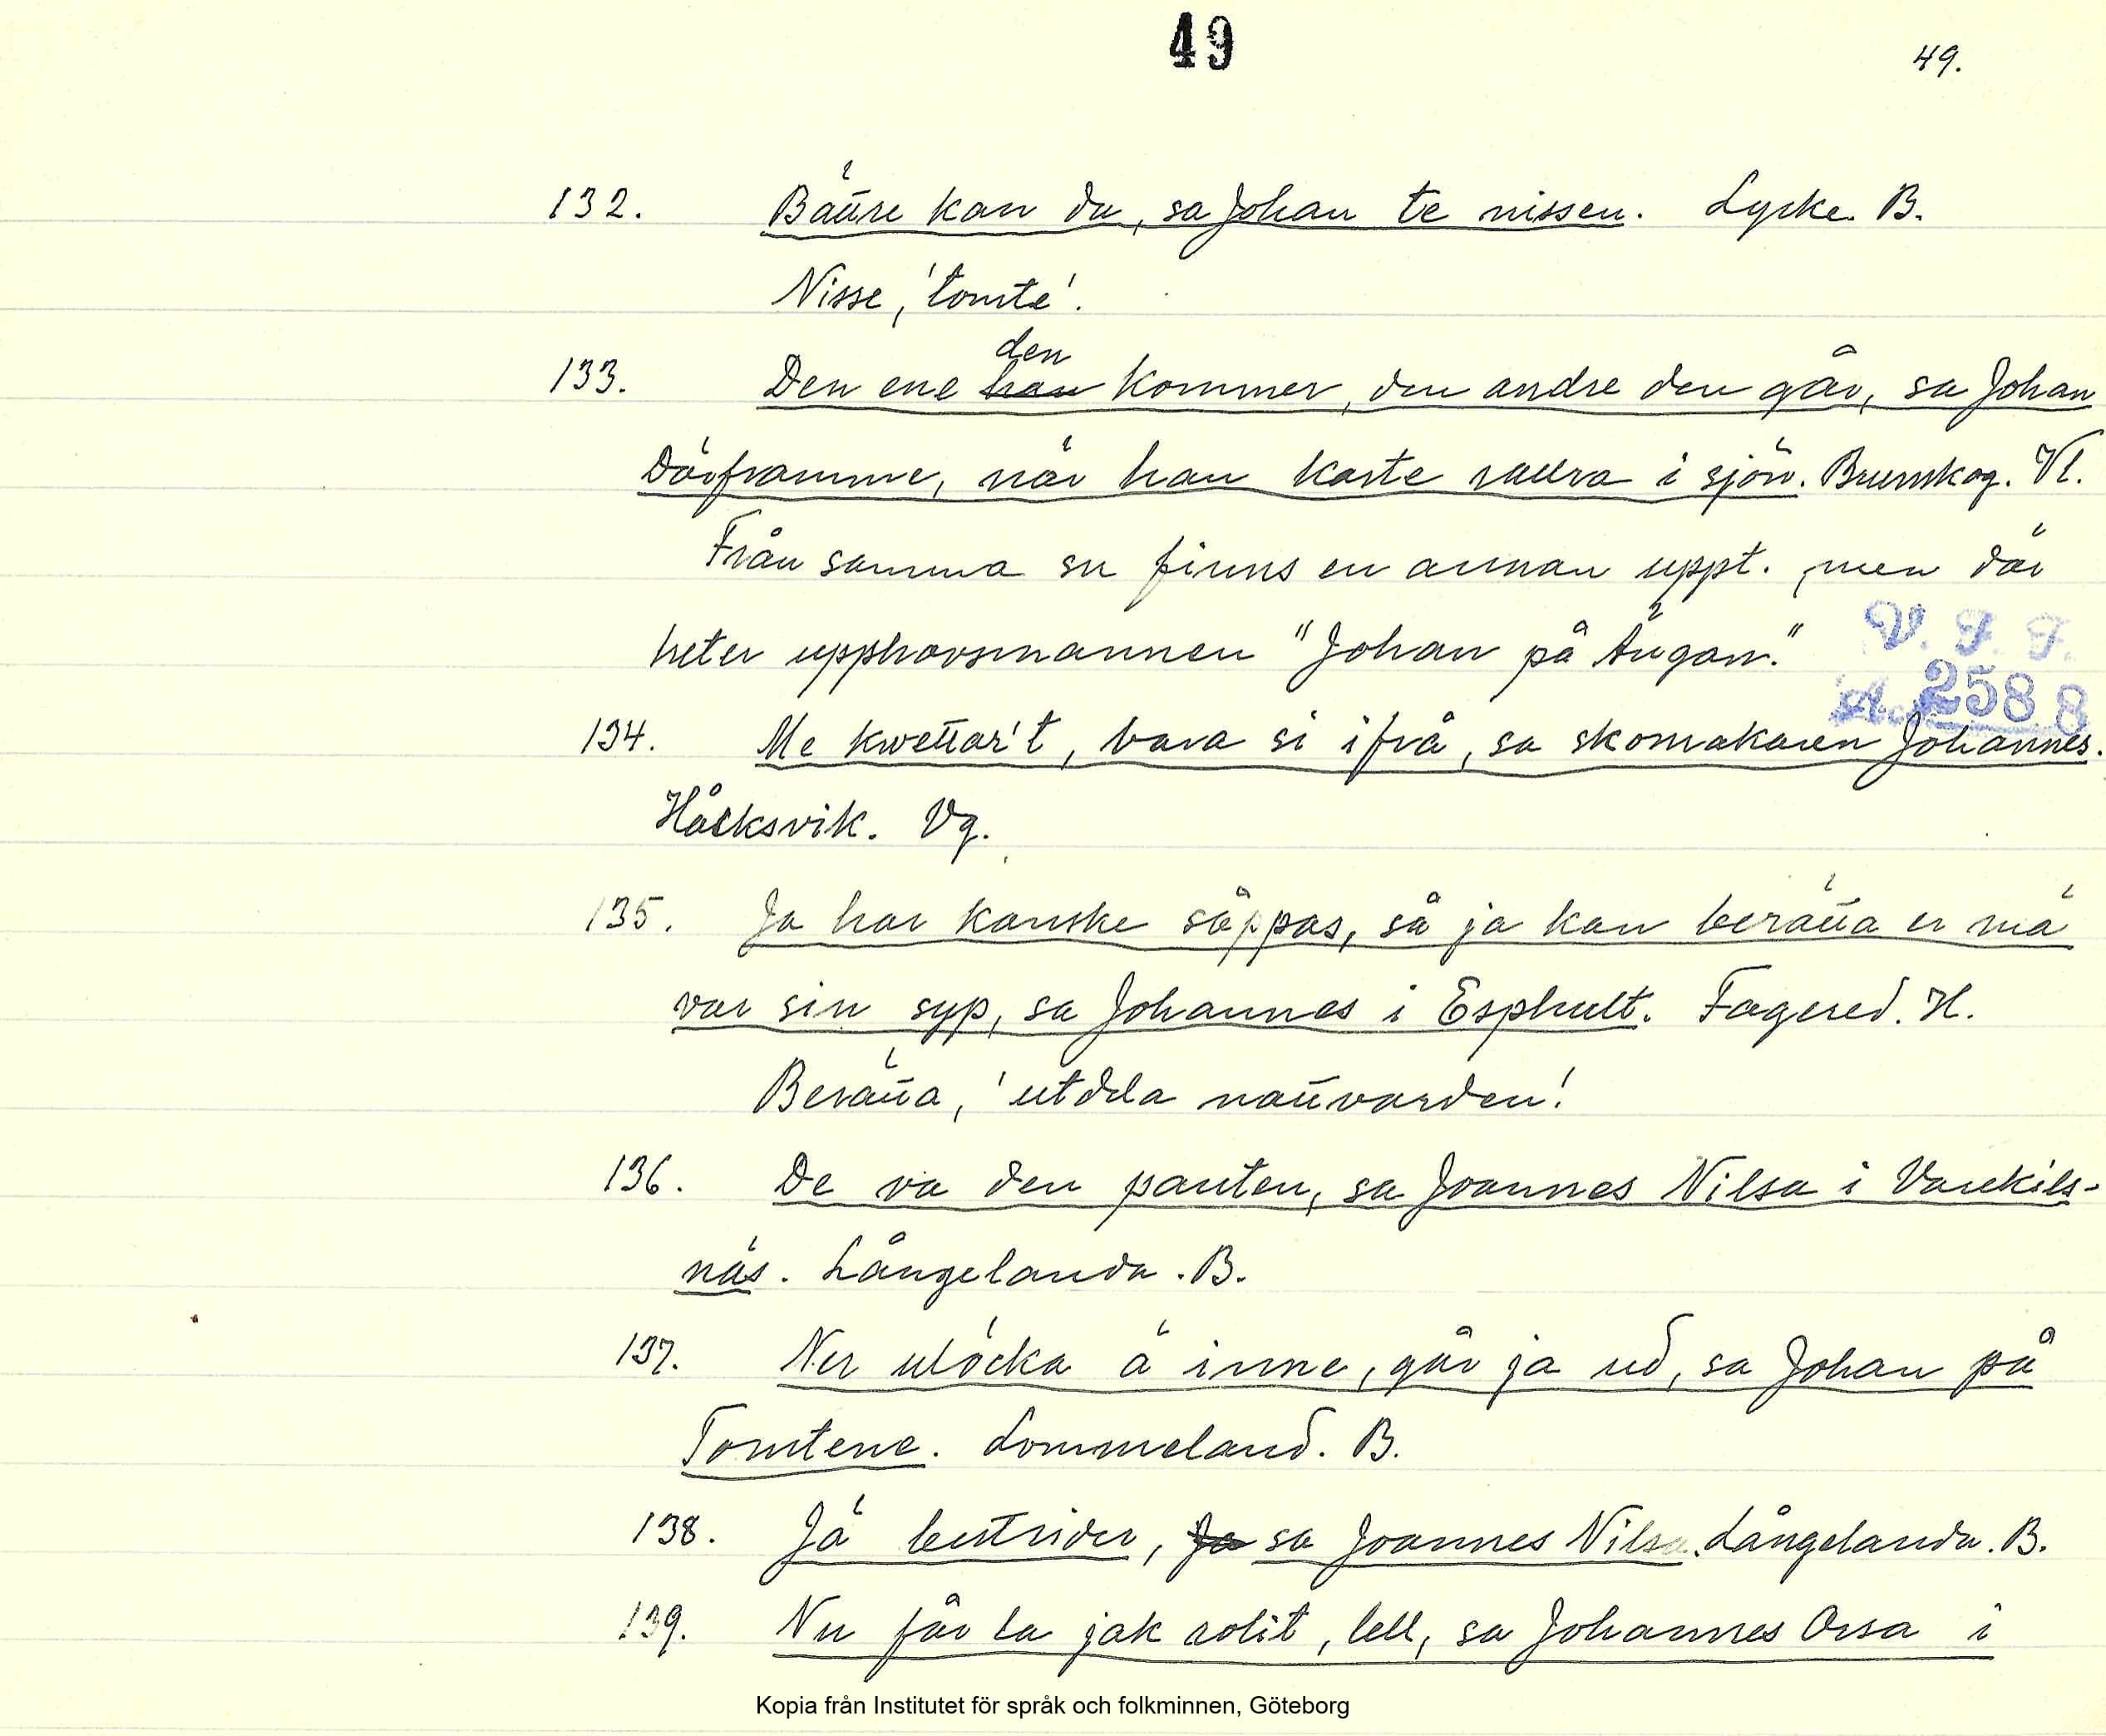 49
49.
132. Bättre kan du, sa Johan te nissen. Lycke. B.
Nisse, 'tomte'.
133. Den ene den kommer, den andre den går, sa Johan
Därframme, när han kaste rullra i sjön. Brunskog. Vl.
Från samma sn finns en annan uppt., men där
heter upphovsmannen "Johan på Ängan."
V. F. F.
Acc. 2588
134. Me kwettar't, bara si ifrå, sa skomakaren Johannes.
Håcksvik. Vg.
135. Ja har kanske såppas, så ja kan berätta er mä
var sin syp, sa Johannes i Esphult. Fagered. H.
Berätta, 'utdela nattvarden'
136. De va den panten, sa Joannes Nilsa i Vanekils-
näs. Långelanda. B.
137. Ner ulöcka ä inne, går ja ud, sa Johan på
Tomtene. Lommeland. B.
138. Jä bestrider, sa Joannes Nilsa. Långelanda. B.
139. Nu får la jak rolit, lell, sa Johannes Orsa i
Kopia från Institutet för språk och folkminnen, Göteborg